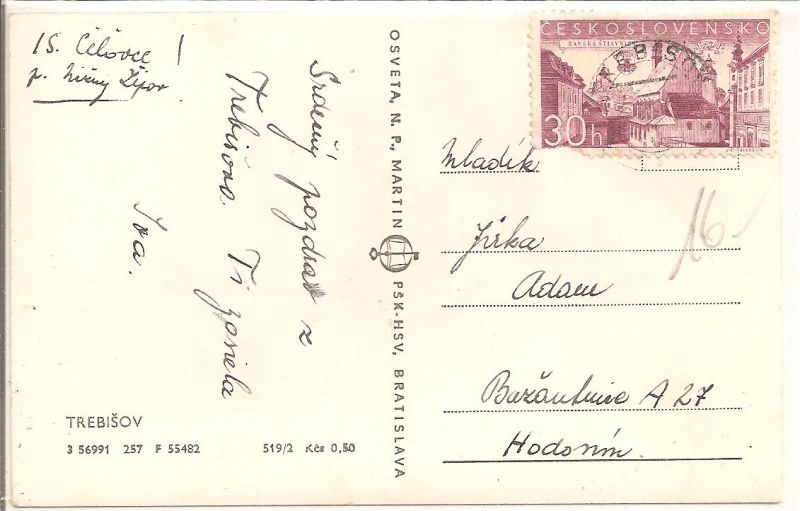 IS. Čeľovce
p. Nižný Žipov
Srdečný pozdrav z
Trebišova Ti zasiela
Iva.
TREBIŠOV
3 56991 257 F 55482 519/2 Kčs 0,50
OSVETA, N. P., MARTIN PŠK-HSV, BRATISLAVA
ČESKOSLOVENSKO
BANSKÁ ŠTIAVNICA
30h
TREBIŠOV
Mladík
Jirka
Adam
16
Bažantnice A 27
Hodonín.